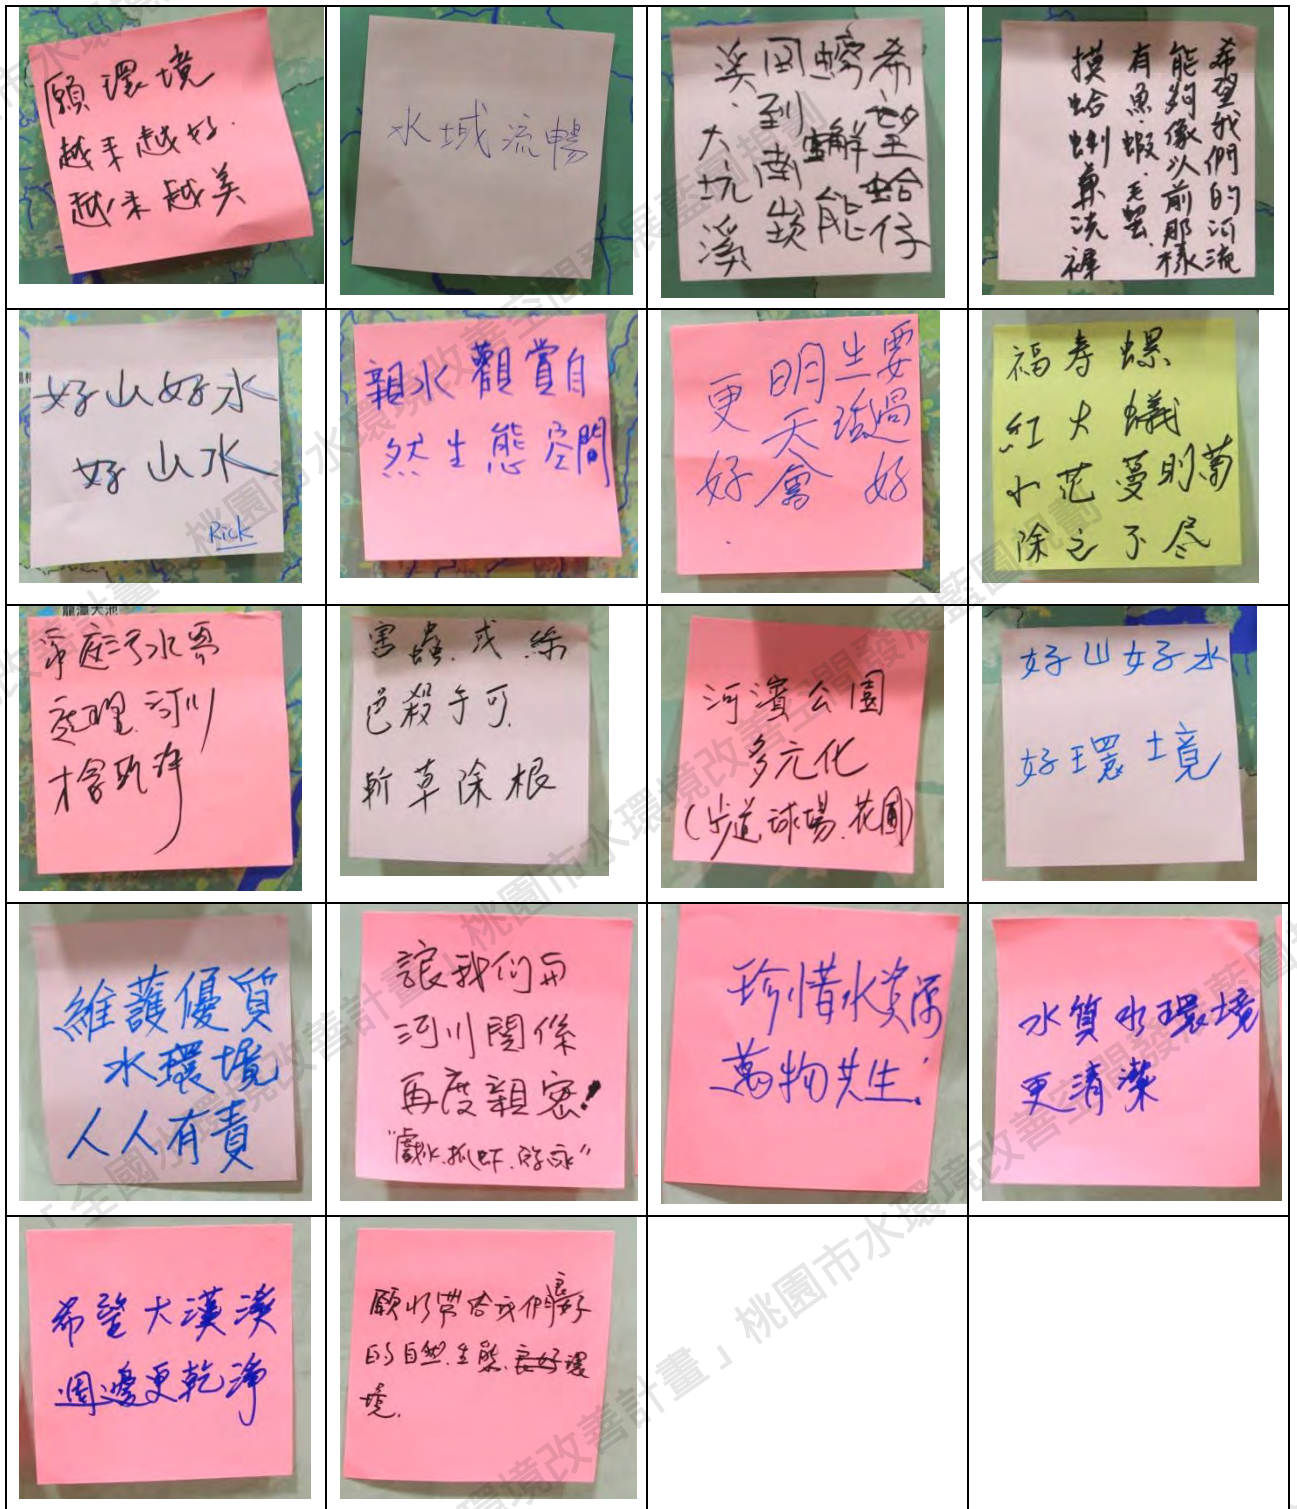 願環境
越來越好.
越來越美
水域流暢
希望蛤仔
螃蟹能
回到南崁
溪.大坑溪
希望我們的河流
能夠像以前那樣
有魚.蝦.毛蟹.
摸蛤蜊兼洗褲
好山好水
好山水
Rick
親水觀賞自
然生態空間
要過好
生活
明天會
更好.
福寿螺
紅火蟻
小花蔓澤菊
除之不尽
龍潭大池
家庭污水需
處理.河川
才會乾净
害蟲.或綠
色殺手可.
斬草除根
河濱公園
多元化
(步道.球場.花圃)
好山好水
好環境
維護優質
水環境
人人有責
讓我们与
河川関係
再度親密!
"戲水.抓虾.游泳"
珍惜水資源
萬物共生.
水質水環境
更清潔
希望大漢溪
週邊更乾淨
願水帶給我們良好
的自然.生態.良好環
境.
「全國水環境改善計畫」桃園市水環境改善空間發展藍圖規劃